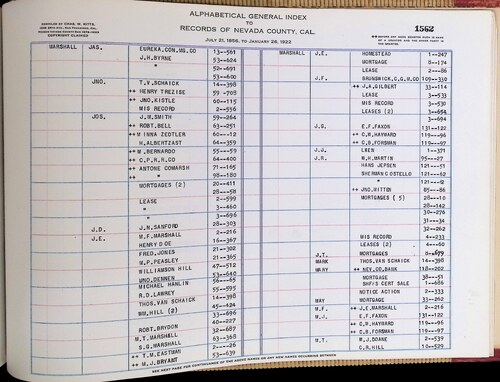 ALPHABETICAL GENERAL INDEX
TO
RECORDS OF NEVADA COUNTY, CAL.
JULY 21, 1856, TO JANUARY 26, 1922
1562
COPYRIGHT CLAIMED
MARSHALL JAS. EUREKA,CON,MG,CO 13--561
J.H.BYRNE 53--624
" 52--691
" 53--600
JNO. T.V.SCHAICK 14--398
++ HENRY TREZISE 59--708
++ JNO.KISTLE 60--115
MIS RECORD 2--556
JOS. J.M.SMITH 59--264
++ ROBT.BELL 63--251
++ M ISNA ZEDTLER 60--12
H.ALBERTZAST 64--359
++ W.BERNARDO 55--59
++ C.P.R.R.CO 64--400
++ ANTONE COMARSH 71--165
++ " 98--180
MORTGAGES (2) 20--411
28--58
LEASE 2--599
" 3--460
" 3--696
J.N.SANFORD 28--303
J.D. M.F.MARSHALL 2--216
J.E. HENRY DOE 16--367
FRED.JONES 21--302
M.P.PEASLEY 21--365
WILLIAMSON HILL 47--511
UNO.DENNEN 53--640
MICHAEL HANLIN 56--65
R.D.LAWREY 55--595
THOS.VAN SCHAICK 14--398
WM,HILL (2) 45--424
33--696
40--227
ROBT.BRYDON 32--687
M.T.MARSHALL 63--368
S.G.MARSHALL 2----26
++ T.M.EASTMAN 53--639
++ M.J.BRYANT
MARSHALL J.E. HOMESTEAD 1--247
MORTGAGE 8--174
LEASE 2--86
J.F. BRUNSWICK,C.G.M.CO 109--330
++ J.A.GILBERT 33--114
LEASE 3--533
MIS RECORD 3--530
LEASES (2) 3--654
3--694
J.G. E.F.FAXON 131--122
++ C.W.HAYWARD 119--96
++ C.B.FORSMAN 119--97
J.J. LEEN 1--371
J.R. W.H.MARTIN 95--27
HANS JEPSEN 121--51
SHERMAN COSTELLO 121--62
" 121--92
++ JNO.WITTEN 85--86
MORTGAGES (5) 28--10
28--142
30--276
31--34
32--262
MIS RECORD 4--233
LEASES (2) 4--60
J.T. MORTGAGES 8--679
MARK THOS.VAN SCHAICK 14--398
MARY ++ NEV.CO.BANK 118--202
MORTGAGE 38--51
SHF/S CERT SALE 1--686
NOTICE ACTION 2--333
MAY MORTGAGE 33--262
M.F. ++ J.E.MARSHALL 2--216
M.J. E.F.FAXON 131--122
++ C.W.HAYWARD 119--96
++ C.B.FORSMAN 119--97
M.T. W.J.DOANE 2--539
C.R.HILL 10--529